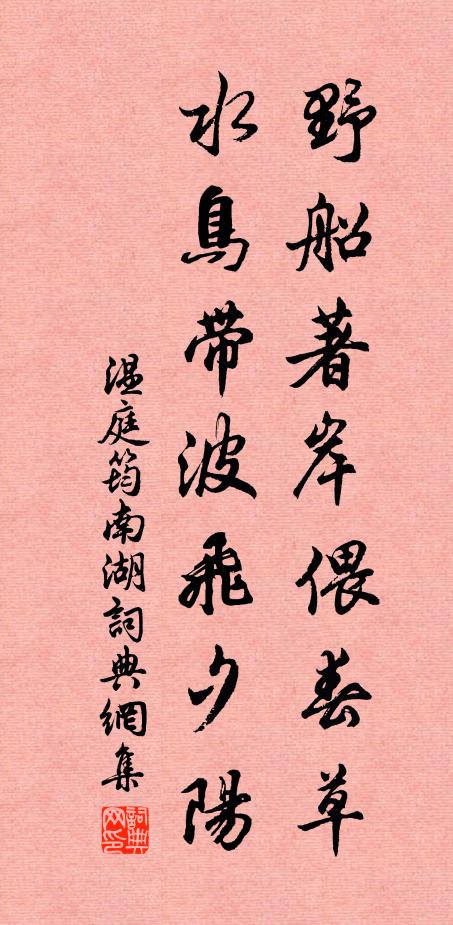 野船著岸偎春草
水鳥帶波飛夕陽
温庭筠南湖詞典網集
詞典网印